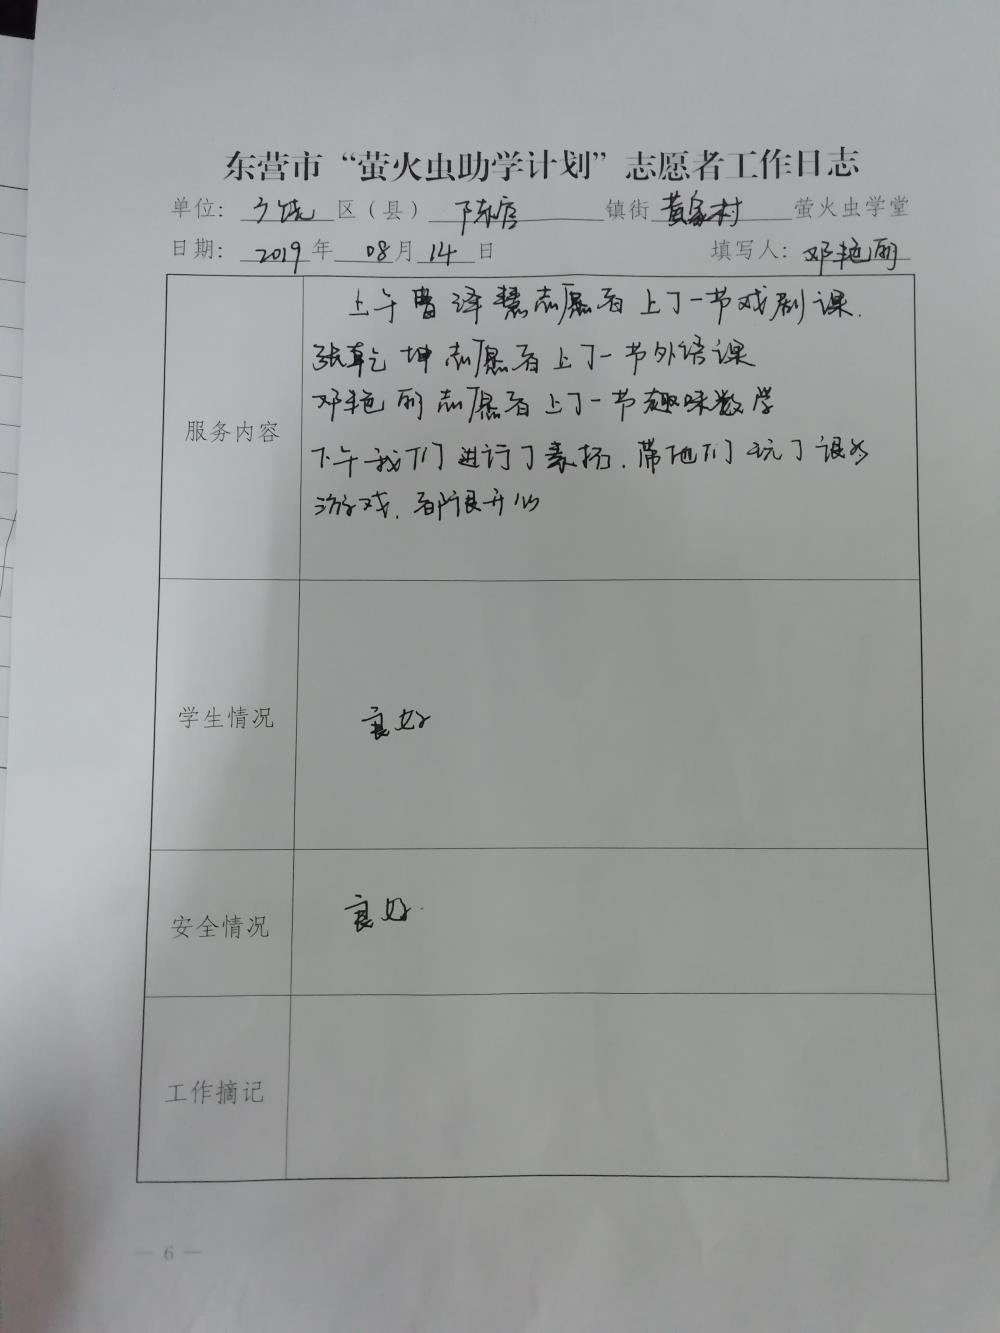 东营市“萤火虫助学计划”志愿者工作日志
单位：广饶区（县）陈官镇街黄家村萤火虫学堂
日期：2019年08月14日 填写人：邓艳丽
服务内容
上午曹泽慧志愿者上了一节戏剧课.
张乾坤志愿者上了一节外语课
邓艳丽志愿者上了一节趣味数学
下午我们进行了素拓.带他们玩了很多
游戏.都很开心
学生情况
良好
安全情况
良好.
工作摘记
— 6 —